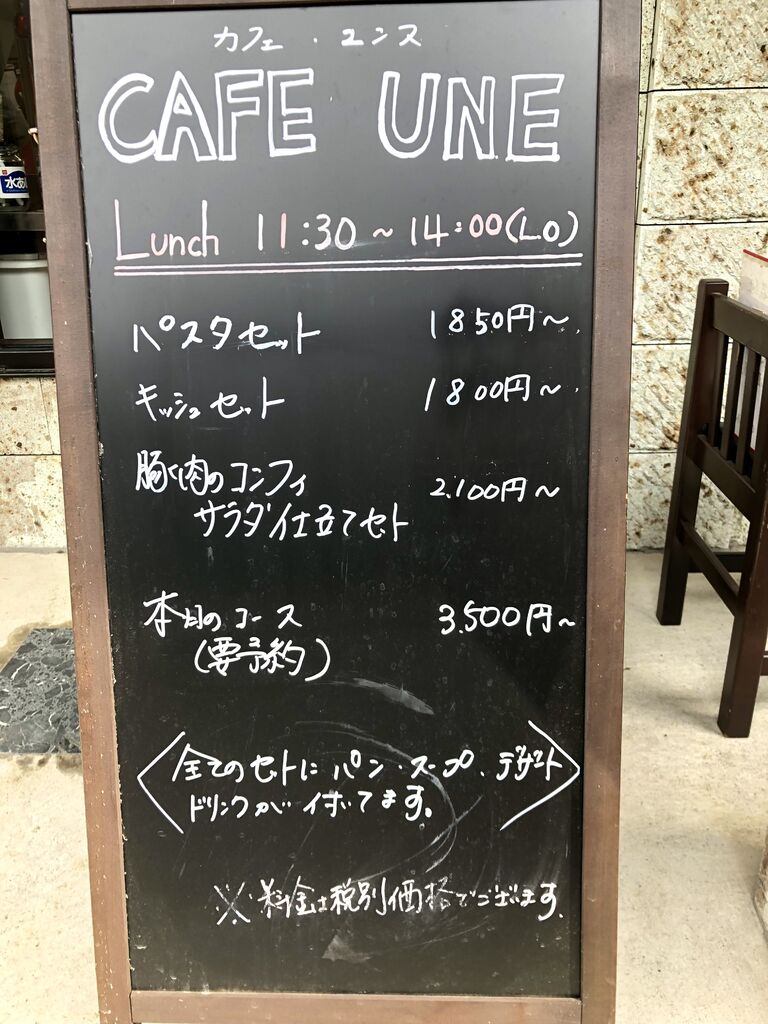 カフェ・ユンヌ
CAFE UNE
Lunch 11:30～14:00(L.O)
パスタセット 1850円～
キッシュセット 1800円～
豚肉のコンフィ 2.100円～
サラダ仕立てセット
本日のコース 3.500円～
(要予約)
全てのセットにパン・スープ・デザート
ドリンクが付いてます。
※料金は税別価格でございます。
水あ